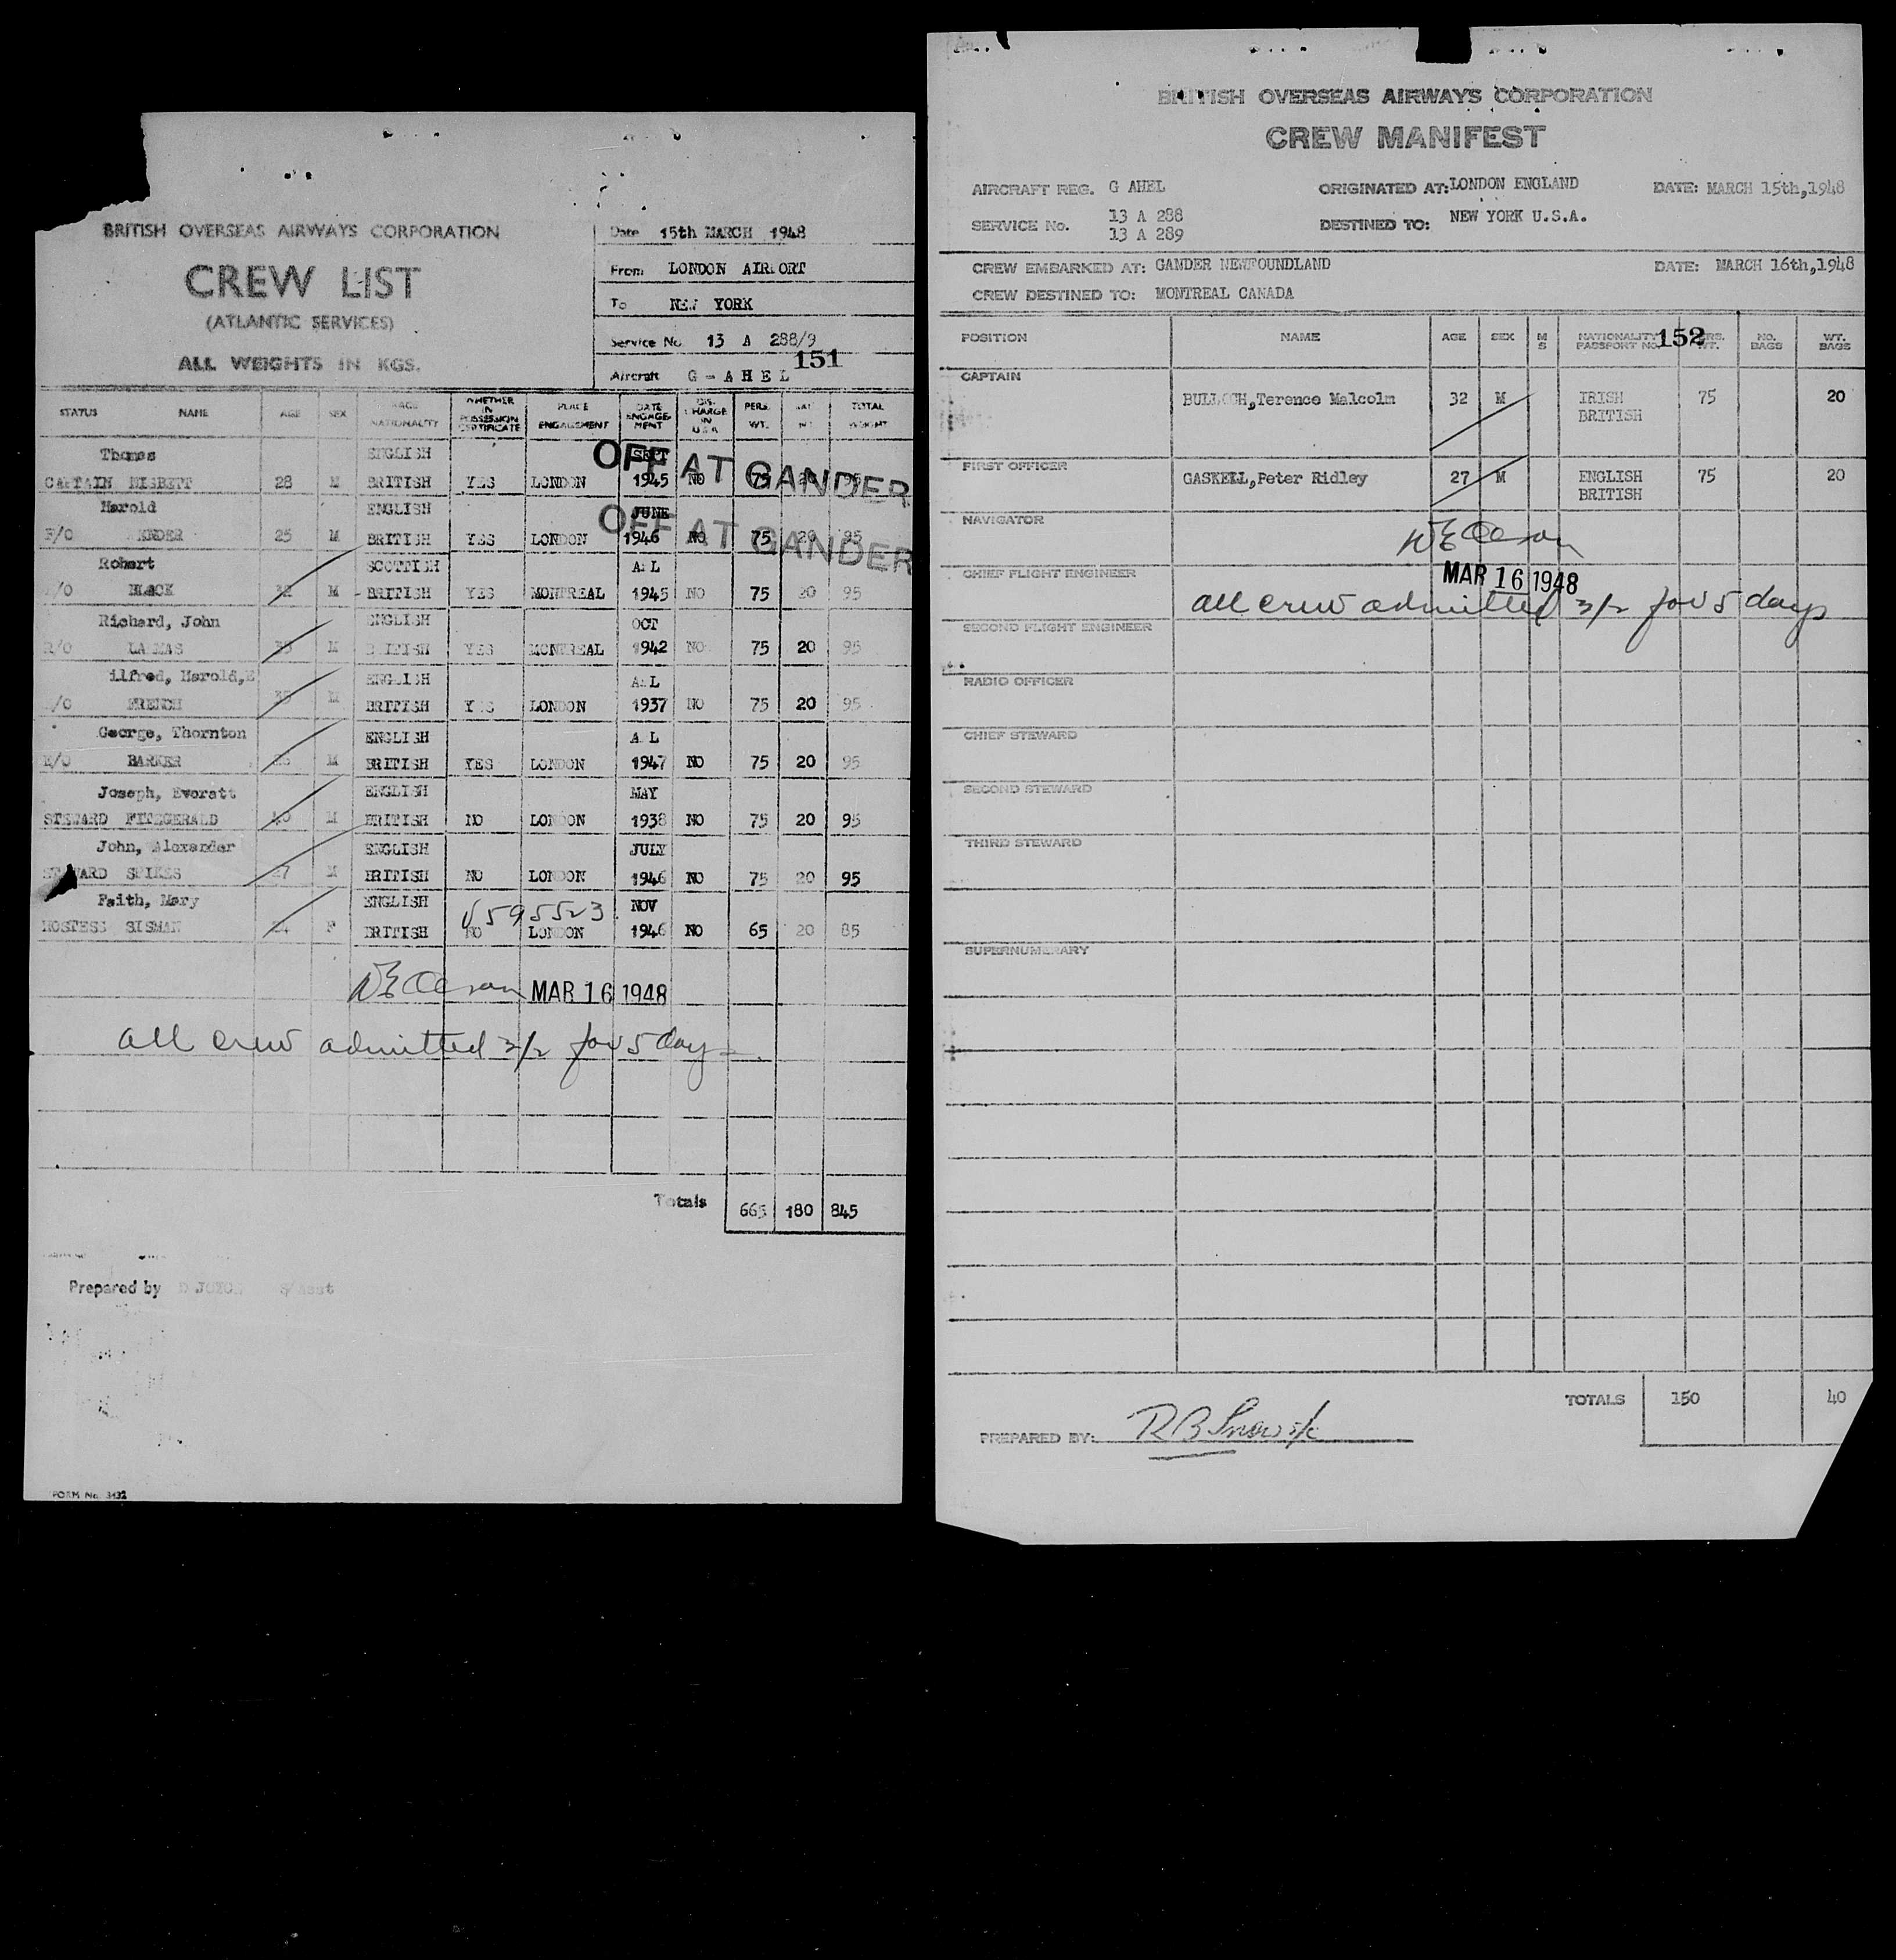 BRITISH OVERSEAS AIRWAYS CORPORATION
CREW LIST
(ATLANTIC SERVICES)
ALL WEIGHTS IN KGS.
Date 15th MARCH 1948
From LONDON AIR ORT
To NEW YORK
Service No. 13 A 288/9
151
Aircraft G - A H E L
STATUS NAME AGE SEX RACE NATIONALITY WHETHER IN POSSESSION CERTIFICATE PLACE ENGAGEMENT DATE ENGAGE- MENT DIS- CHARGE IN U.S.A. PERS. WT. TOTAL WEIGHT
Thomas ENGLISH SEPT
CAPTAIN NISBETT 28 M BRITISH YES LONDON 1945 NO 75
OFF AT GANDER
Harold ENGLISH JUNE
F/O 25 M BRITISH YES LONDON 1946 NO 75 20 95
OFF AT GANDER
Robert SCOTTISH
BLACK M BRITISH YES MONTREAL 1945 NO 75 20 95
Richard, John ENGLISH OCT
R/O M BRITISH YES MONTREAL 1942 NO 75 20 95
ilfred, Harold,E ENGLISH
FRENCH M BRITISH YES LONDON 1937 NO 75 20 95
George, Thornton ENGLISH
BARKER M BRITISH YES LONDON 1947 NO 75 20 95
Joseph, Everatt ENGLISH MAY
STEWARD FITZGERALD 40 M BRITISH NO LONDON 1938 NO 75 20 95
John, Alexander ENGLISH JULY
STEWARD SPIKES 27 M BRITISH NO LONDON 1946 NO 75 20 95
Faith, Mary ENGLISH NOV
V595523
HOSTESS SISMAN 24 F BRITISH NO LONDON 1946 NO 65 20 85
MAR 16 1948
all crew admitted 3/2 for 5 days
Totals 665 180 845
Prepared by
FORM No. 3432
BRITISH OVERSEAS AIRWAYS CORPORATION
CREW MANIFEST
AIRCRAFT REG. G AHEL ORIGINATED AT: LONDON ENGLAND DATE: MARCH 15th,1948
SERVICE No. 13 A 288 DESTINED TO: NEW YORK U.S.A.
13 A 289
CREW EMBARKED AT: GANDER NEWFOUNDLAND DATE: MARCH 16th,1948
CREW DESTINED TO: MONTREAL CANADA
POSITION NAME AGE SEX M S NATIONALITY PASSPORT NO. PERS. WT. NO. BAGS WT. BAGS
152
CAPTAIN
BULLOCH,Terence Malcolm 32 M IRISH 75 20
BRITISH
FIRST OFFICER
GASKELL,Peter Ridley 27 M ENGLISH 75 20
BRITISH
NAVIGATOR
CHIEF FLIGHT ENGINEER
MAR 16 1948
all crew admitted 3/2 for 5 days
SECOND FLIGHT ENGINEER
RADIO OFFICER
CHIEF STEWARD
SECOND STEWARD
THIRD STEWARD
SUPERNUMERARY
TOTALS 150 40
PREPARED BY: